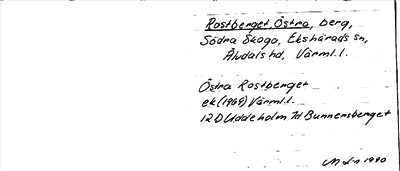 Rostberget, Östra, berg,
Södra Skoga, Ekshärads sn,
Älvdals hd, Värml. l.
Östra Rostberget
ek (1969) Värml. l.
12D Uddeholm 7d Bunnersberget
1990